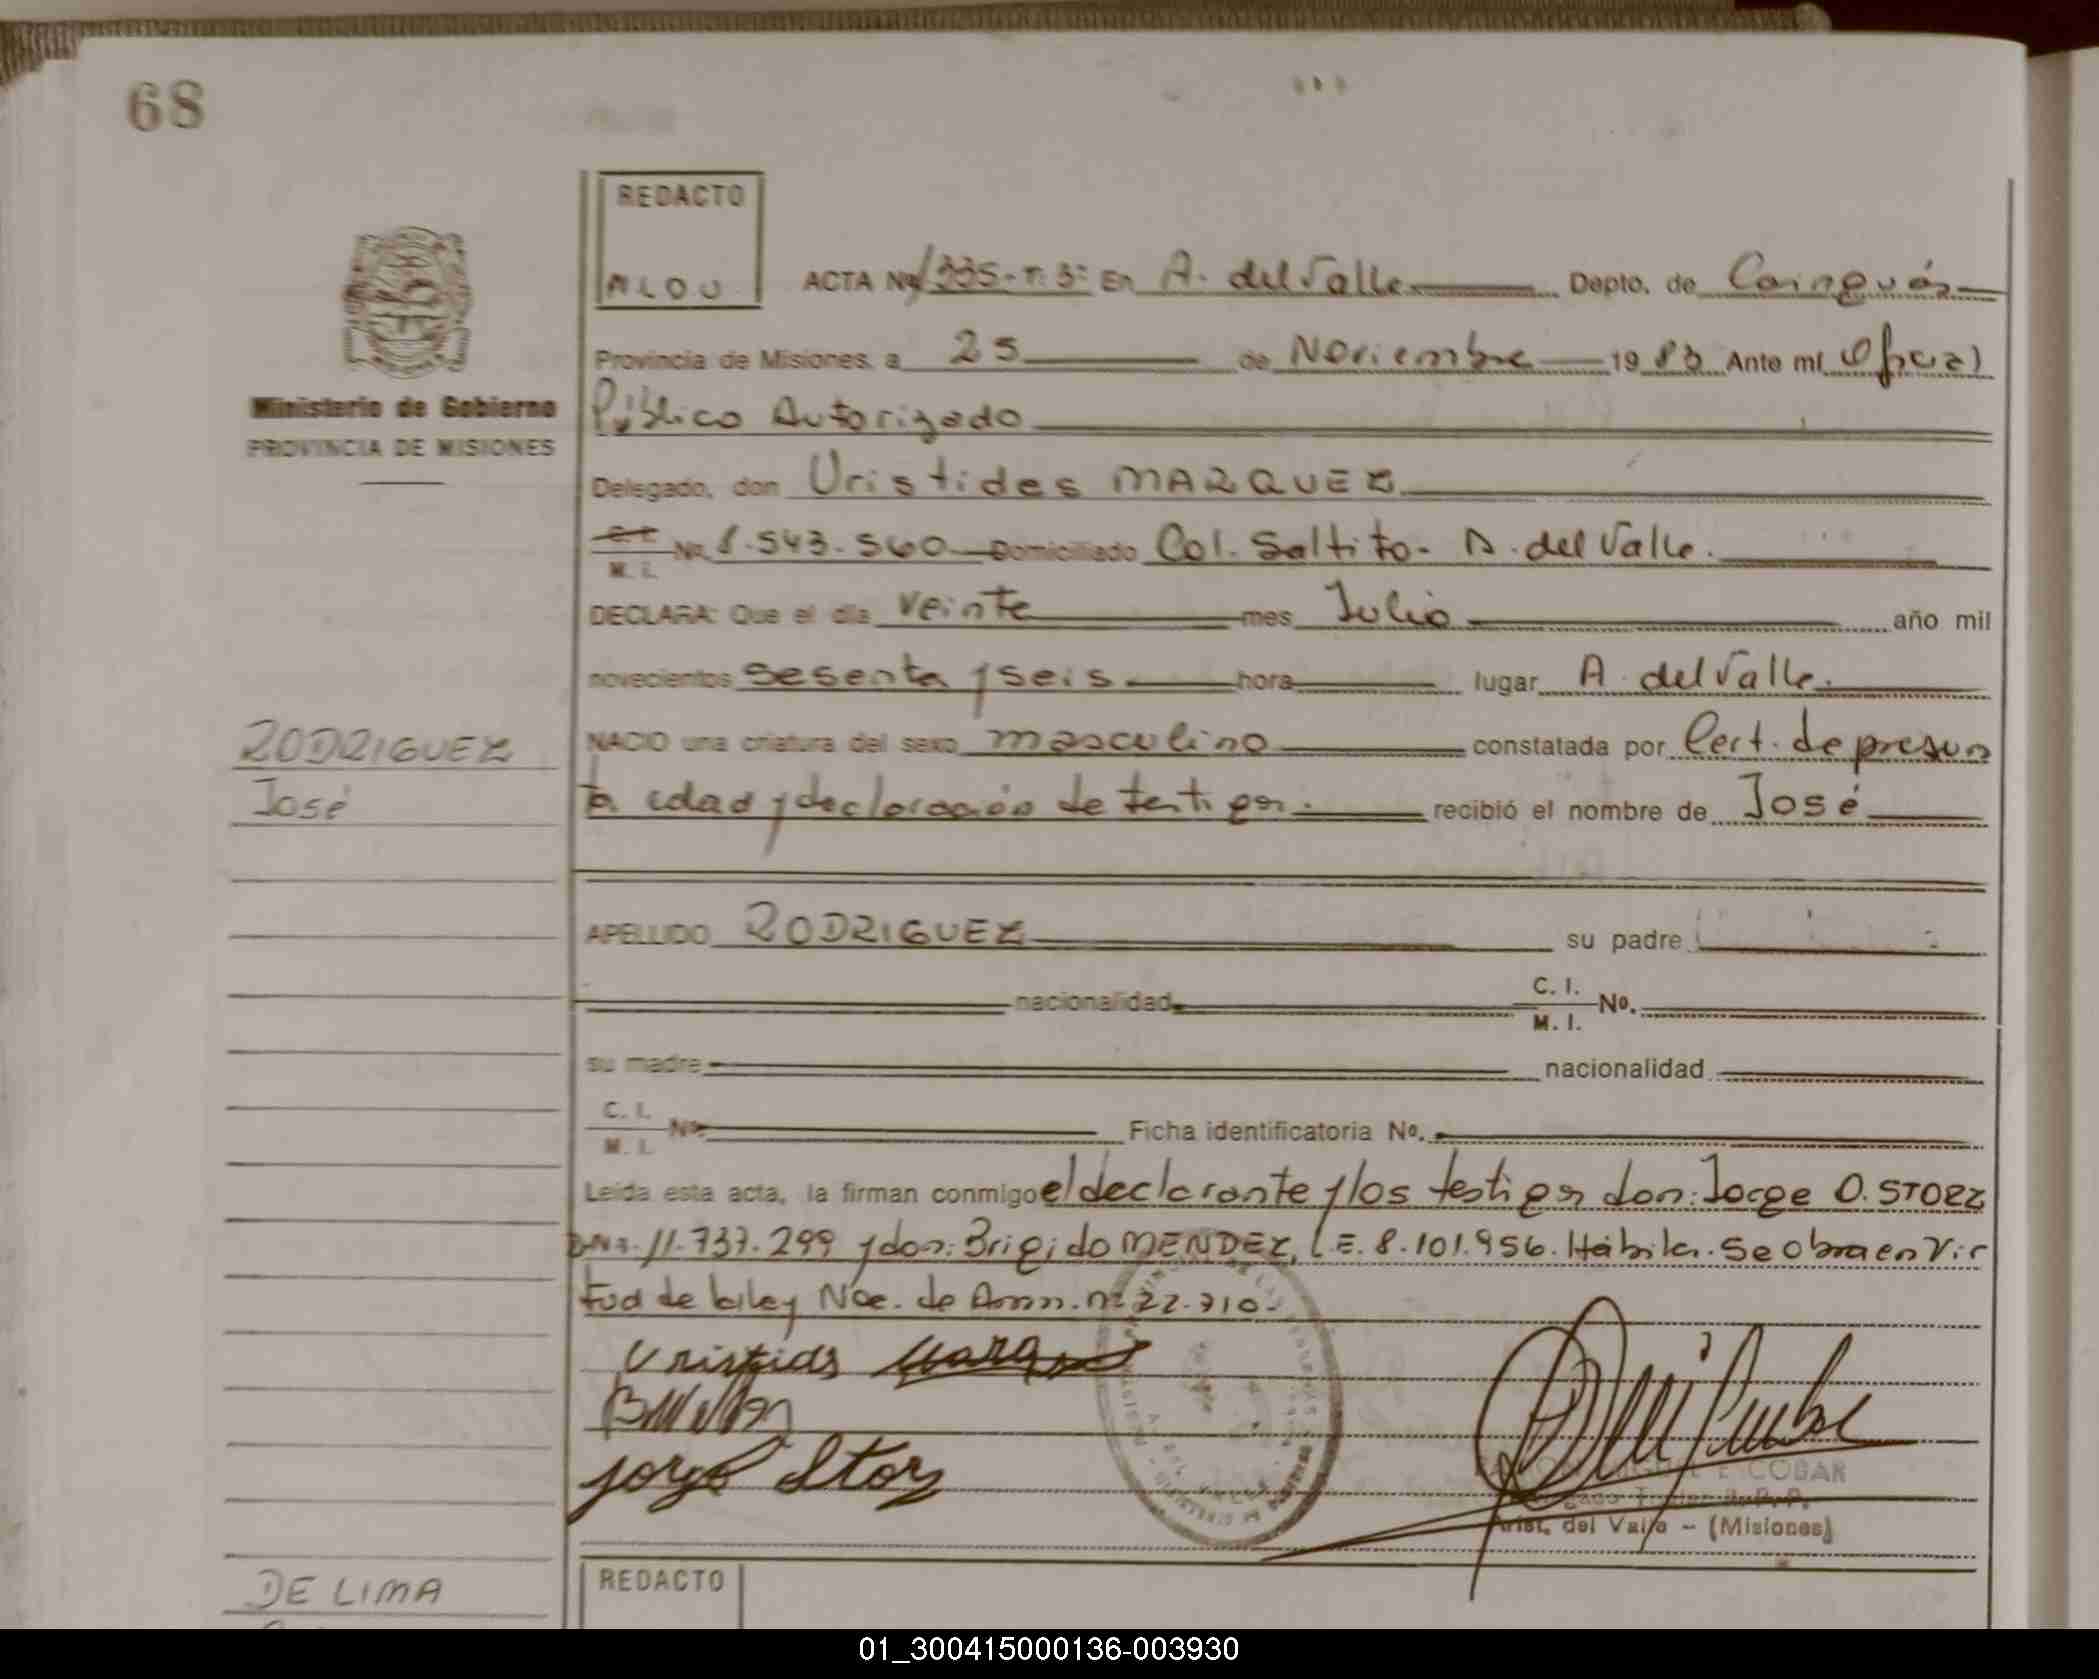 68
REDACTO
ACTA Nº 335-T. 3º En A. del Valle Depto. de Cainguás
Provincia de Misiones, a 25 de Noviembre 1983 Ante mí Oficial
Público Autorizado
Ministerio de Gobierno
PROVINCIA DE MISIONES
Delegado, don Uristides MARQUEZ
C. I.
M. I. Nº 8.543.560 Domiciliado Col. Saltito - A. del Valle.
DECLARA: Que el día veinte mes Julio año mil
novecientos sesenta y seis hora lugar A. del Valle.
RODRIGUEZ
José
NACIO una criatura del sexo masculino constatada por Cert. de presun
ta edad y declaración de testigos. recibió el nombre de José
APELLIDO RODRIGUEZ su padre
nacionalidad C. I.
M. I. Nº.
su madre nacionalidad
C. I.
M. I. Nº Ficha identificatoria Nº.
Leída esta acta, la firman conmigo el declarante y los testigos don: Jorge O. STORZ
11.737.299 y don: Brigido MENDEZ, L.E. 8.101.956. Hábiles. Se obra en Vir
tud de la ley Nac. de Amn. nº 22.710-
Uristides
Jorge Storz
ESCOBAR
Arist. del Valle - (Misiones)
DE LIMA
REDACTO
01_300415000136-003930